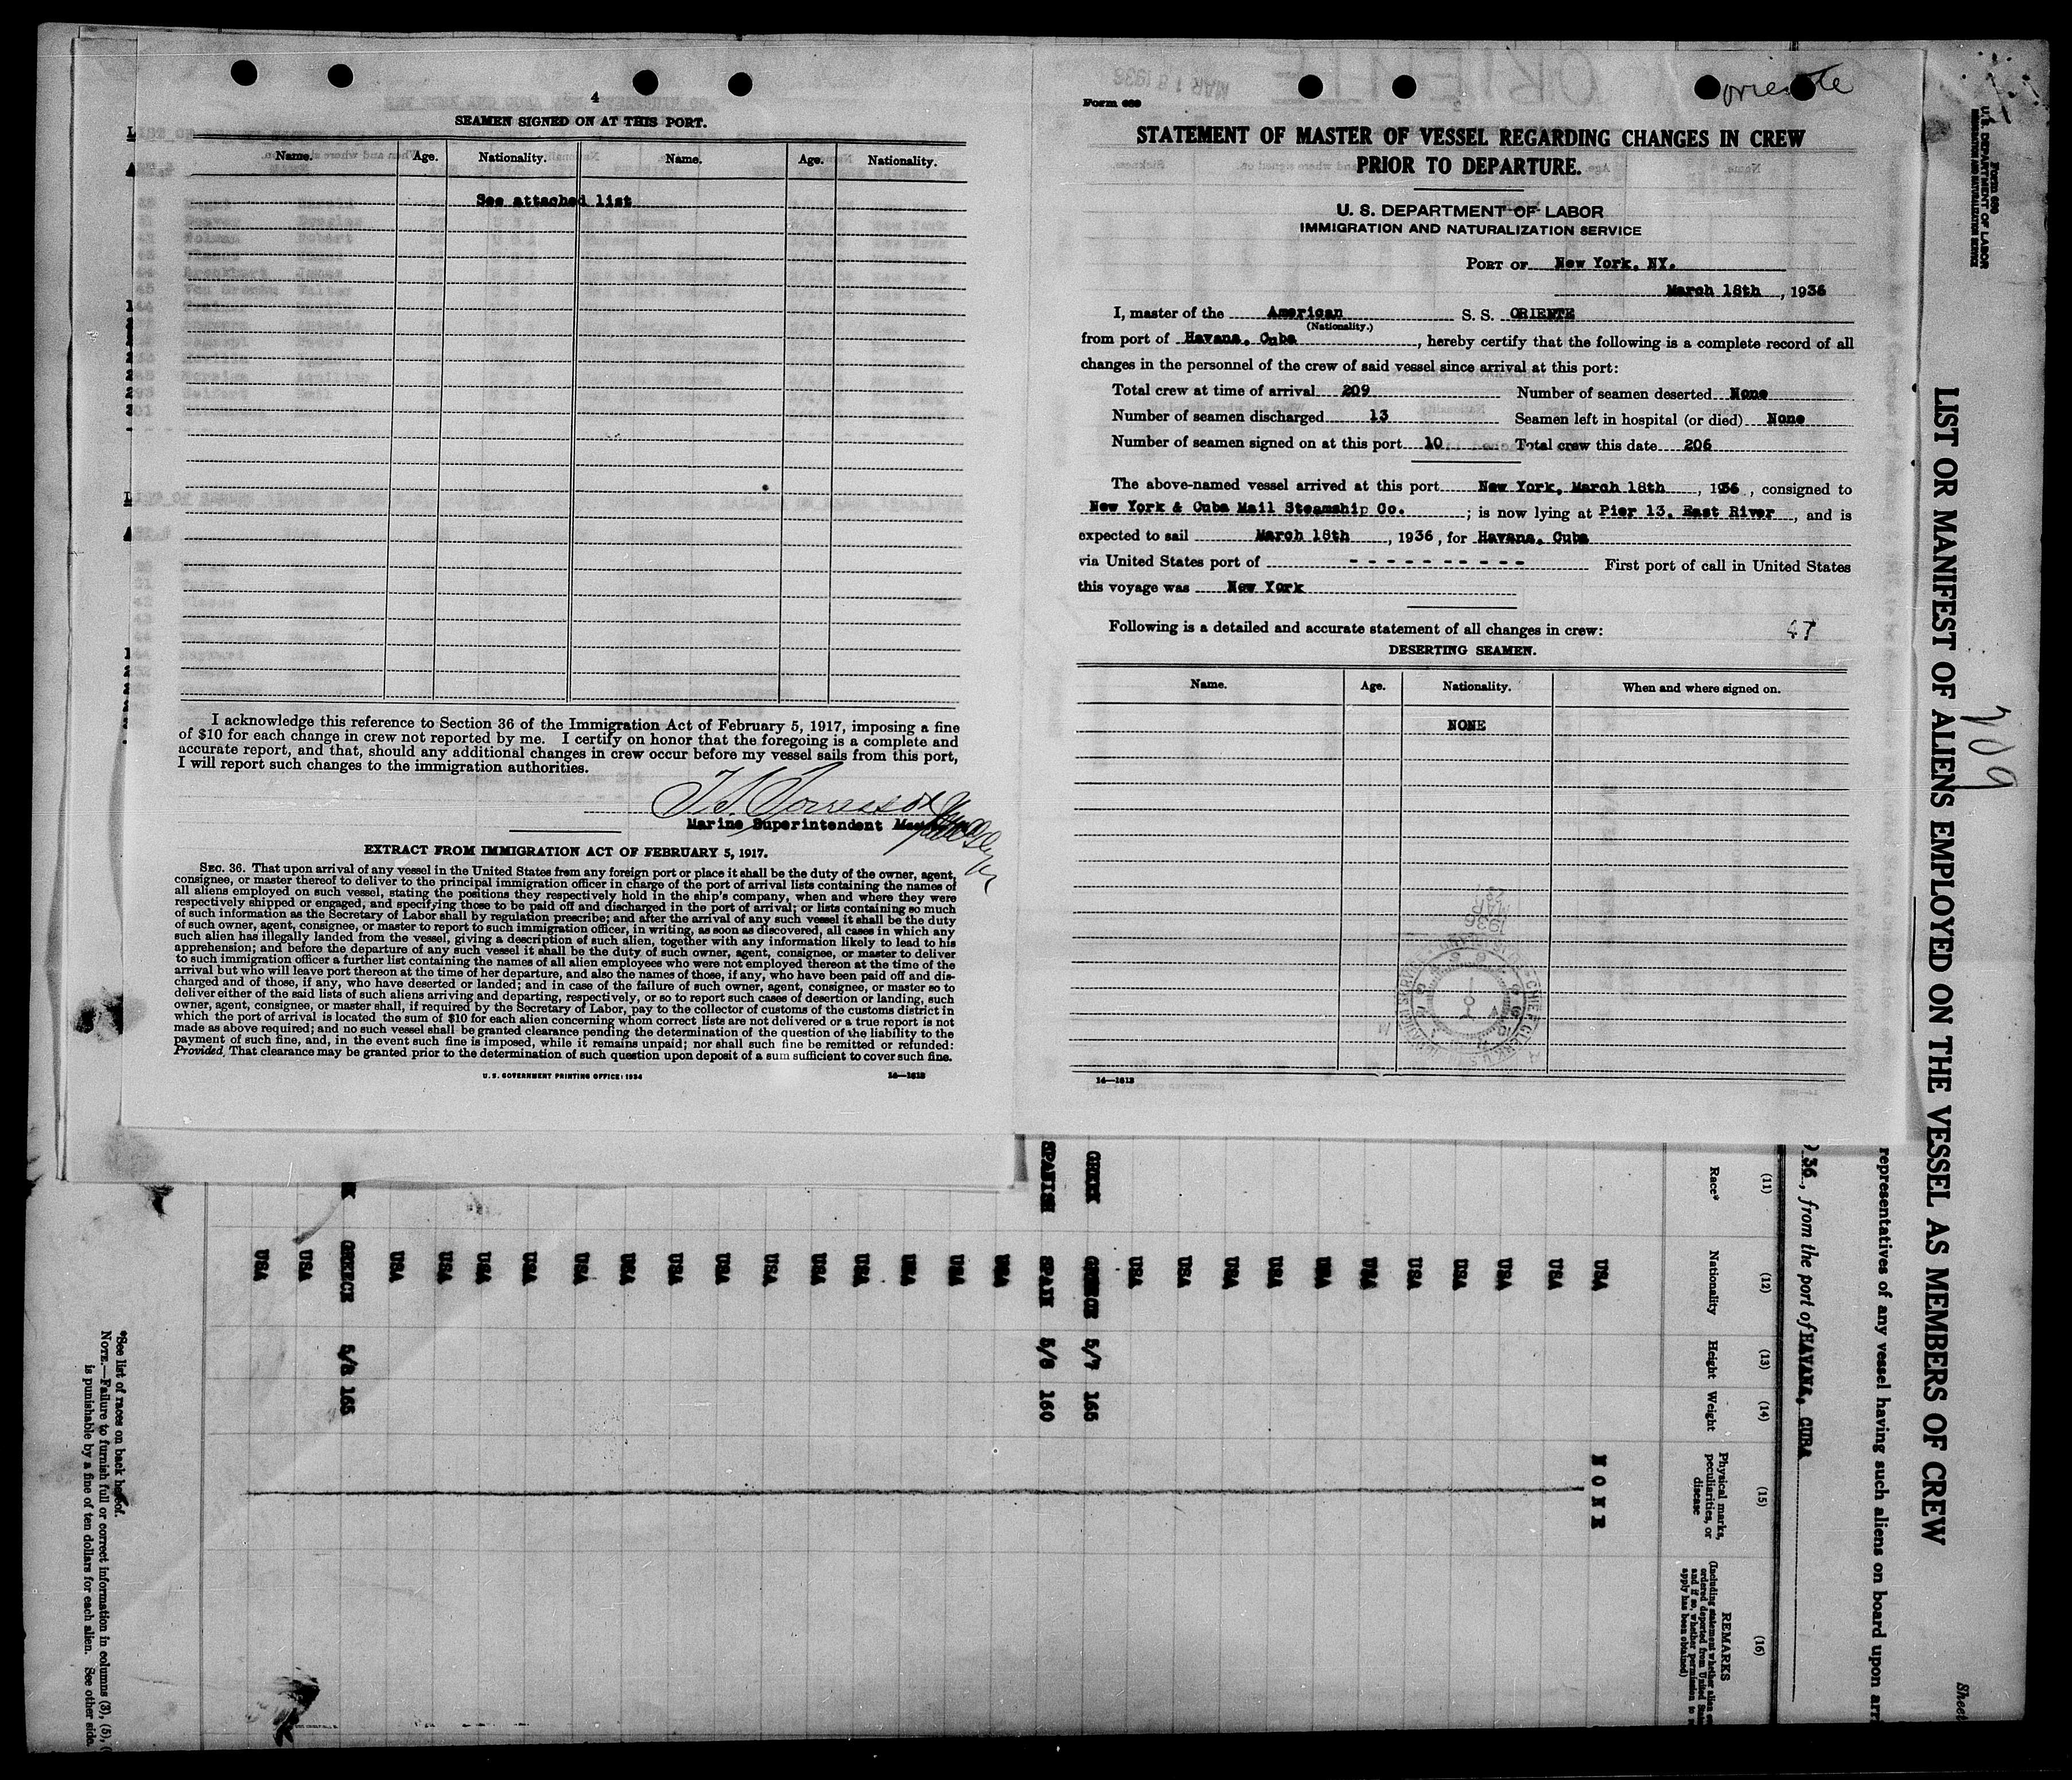 4
SEAMEN SIGNED ON AT THIS PORT.
Name. Age. Nationality. Name. Age. Nationality.
See attached list
I acknowledge this reference to Section 36 of the Immigration Act of February 5, 1917, imposing a fine
of $10 for each change in crew not reported by me. I certify on honor that the foregoing is a complete and
accurate report, and that, should any additional changes in crew occur before my vessel sails from this port,
I will report such changes to the immigration authorities.
Marine Superintendent
EXTRACT FROM IMMIGRATION ACT OF FEBRUARY 5, 1917.
SEC. 36. That upon arrival of any vessel in the United States from any foreign port or place it shall be the duty of the owner, agent,
consignee, or master thereof to deliver to the principal immigration officer in charge of the port of arrival lists containing the names of
all aliens employed on such vessel, stating the positions they respectively hold in the ship's company, when and where they were
respectively shipped or engaged, and specifying those to be paid off and discharged in the port of arrival; or lists containing so much
of such information as the Secretary of Labor shall by regulation prescribe; and after the arrival of any such vessel it shall be the duty
of such owner, agent, consignee, or master to report to such immigration officer, in writing, as soon as discovered, all cases in which any
such alien has illegally landed from the vessel, giving a description of such alien, together with any information likely to lead to his
apprehension; and before the departure of any such vessel it shall be the duty of such owner, agent, consignee, or master to deliver
to such immigration officer a further list containing the names of all alien employees who were not employed thereon at the time of the
arrival but who will leave port thereon at the time of her departure, and also the names of those, if any, who have been paid off and dis-
charged and of those, if any, who have deserted or landed; and in case of the failure of such owner, agent, consignee, or master so to
deliver either of the said lists of such aliens arriving and departing, respectively, or so to report such cases of desertion or landing, such
owner, agent, consignee, or master shall, if required by the Secretary of Labor, pay to the collector of customs of the customs district in
which the port of arrival is located the sum of $10 for each alien concerning whom correct lists are not delivered or a true report is not
made as above required; and no such vessel shall be granted clearance pending the determination of the question of the liability to the
payment of such fine, and, in the event such fine is imposed, while it remains unpaid; nor shall such fine be remitted or refunded:
Provided, That clearance may be granted prior to the determination of such question upon deposit of a sum sufficient to cover such fine.
U. S. GOVERNMENT PRINTING OFFICE: 1934 14—1613
Oriente
Form 689
STATEMENT OF MASTER OF VESSEL REGARDING CHANGES IN CREW
PRIOR TO DEPARTURE.
U. S. DEPARTMENT OF LABOR
IMMIGRATION AND NATURALIZATION SERVICE
PORT OF New York, NY.
March 18th, 1936
I, master of the American S. S. ORIENTE
(Nationality.)
from port of Havana, Cuba, hereby certify that the following is a complete record of all
changes in the personnel of the crew of said vessel since arrival at this port:
Total crew at time of arrival 209 Number of seamen deserted None
Number of seamen discharged 13 Seamen left in hospital (or died) None
Number of seamen signed on at this port 10 Total crew this date 206
The above-named vessel arrived at this port New York, March 18th, 1936, consigned to
New York & Cuba Mail Steamship Co.; is now lying at Pier 13, East River, and is
expected to sail March 18th, 1936, for Havana, Cuba
via United States port of - - - - - - - - - - First port of call in United States
this voyage was New York
Following is a detailed and accurate statement of all changes in crew: 47
DESERTING SEAMEN.
Name. Age. Nationality. When and where signed on.
NONE
14—1613
Form 689
U. S. DEPARTMENT OF LABOR
IMMIGRATION AND NATURALIZATION SERVICE
LIST OR MANIFEST OF ALIENS EMPLOYED ON THE VESSEL AS MEMBERS OF CREW
209
Sheet
representatives of any vessel having such aliens on board upon arr
36, from the port of HAVANA, CUBA
(11) (12) (13) (14) (15) (16)
Race* Nationality Height Weight Physical marks, peculiarities, or disease REMARKS
USA NONE
USA
USA
USA
USA
USA
USA
USA
USA
USA
USA
GREEK GREECE 5/7 165
SPANISH SPAIN 5/8 160
USA
USA
USA
USA
USA
USA
USA
USA
USA
USA
USA
USA
USA
USA
GREECE 5/8 165
USA
USA
*See list of races on back hereof.
NOTE.—Failure to furnish full or correct information in columns (3), (5), (
is punishable by a fine of ten dollars for each alien. See other side.